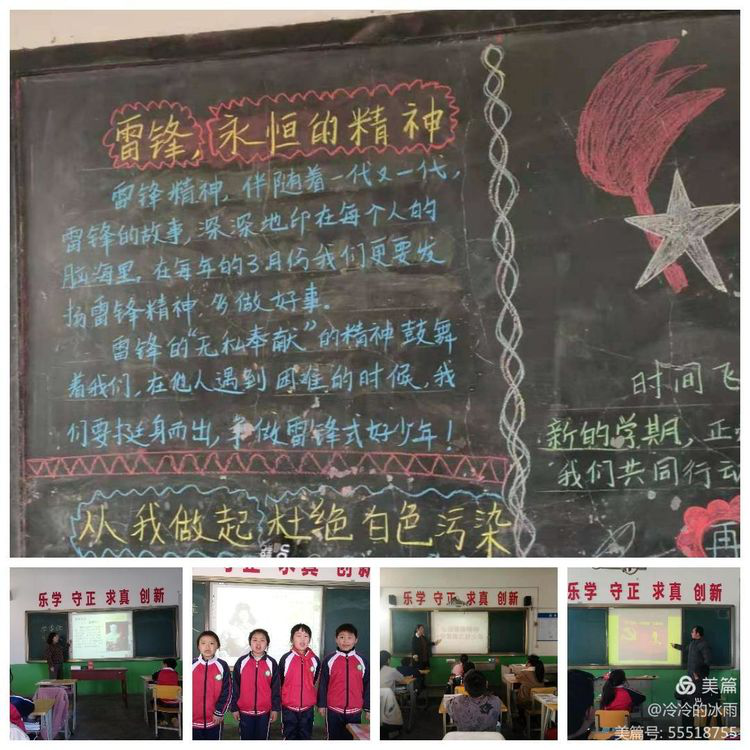 雷锋，永恒的精神
雷锋精神，伴随着一代又一代，
雷锋的故事，深深地印在每个人的
脑海里，在每年的3月份我们更要发
扬雷锋精神，多做好事。
雷锋的“无私奉献”的精神鼓舞
着我们，在他人遇到困难的时候，我
们要挺身而出，争做雷锋式好少年！
从我做起 杜绝白色污染
时间飞
新的学期，正
我们共同行动
再
乐学 守正 求真 创新
守正 求真 创新
乐学 守正 求真 创新
乐学 守正 求真 创新
美篇
@冷冷的冰雨
美篇号: 55518755